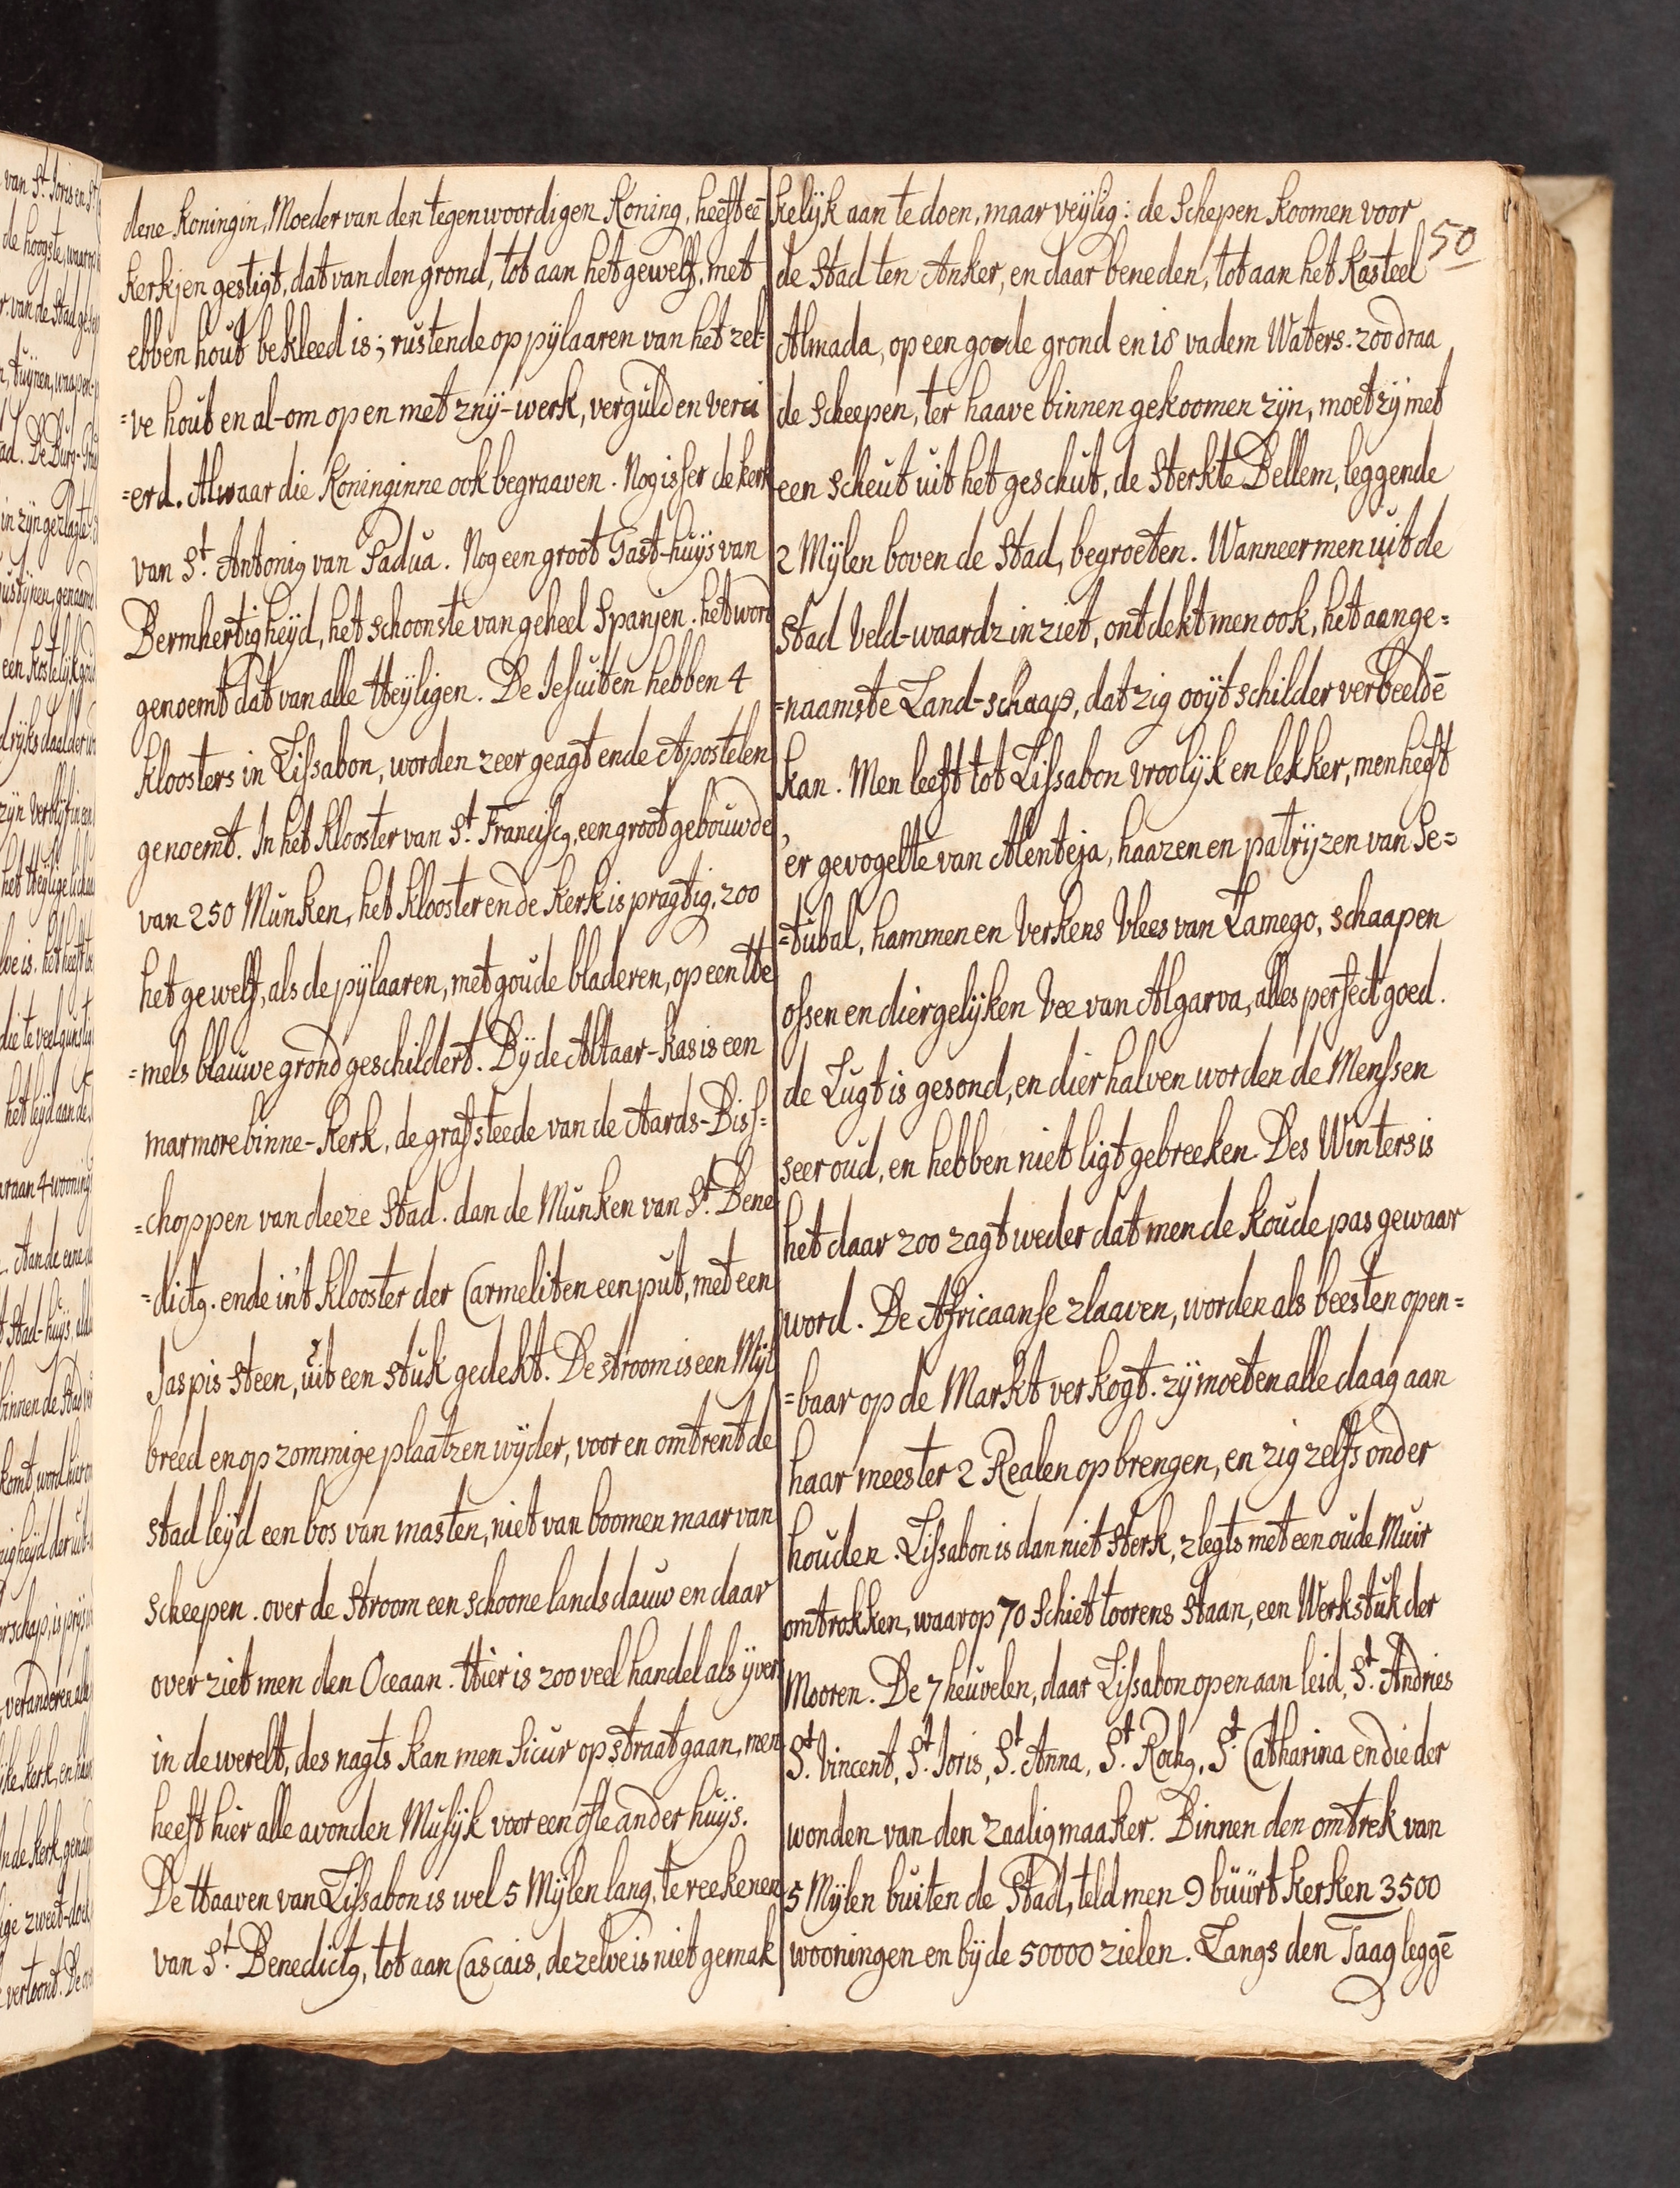 dene Koningin, Moeder van den tegenwoordigen Koning, heeft eē
kerkjen gestigt, dat van den grond, tot aan het gewelf, met
ebben hout bekleed is; rustende op pÿlaaren van het zel-
=ve hout en al-om open met znÿ-werk, verguld en verci
=erd. Alwaar die Koninginne ook begraaven. Nog isser de kerk
van St. Antonig van Padua. Nog een groot Gast-huÿs van
Bermhertigheÿd, het schoonste van geheel Spanjen. het word
genoemt dat van alle Heÿligen. De Jesuiten hebben 4
kloosters in Lissabon, worden zeer geagt ende Apostelen
genoemt. In het klooster van St. Franciscg, een groot gebouw de
van 250 Munken, het klooster en de kerk is pragtig, zoo
het gewelf, als de pÿlaaren, met goude bladeren, op een He
=mels blauwe grond geschildert. Bÿ de Altaar-kas is een
marmore binne-kerk, de grafsteede van de Aards-Biss-
=choppen van deeze Stad. dan de Munken van St. Bene
=dictg. ende in't klooster der Carmeliten een put, met een
Jaspis steen, uit een stuk gedekt. De stroom is een Mÿl
breed en op zommige plaatzen wÿder, voor en omtrent de
stad leÿd een bos van masten, niet van boomen maar van
scheepen. over de stroom een schoone landsdauw en daar
over ziet men den Oceaan. Hier is zoo veel handel als ÿver
in de werelt, des nagts kan men sicur op straat gaan, men
heeft hier alle avonden Musÿk voor een ofte ander huÿs.
De Haaven van Lissabon is wel 5 Mÿlen lang, te reekenen
van St. Benedictg, tot aan Cascais, dezelve is niet gemak
50
kelÿk aan te doen, maar veÿlig: de Schepen koomen voor
de Stad ten Anker, en daar beneden, tot aan het Kasteel
Almada, op een goede grond en 18 vadem Waters. zoo draa
de scheepen, ter haave binnen gekoomen zÿn, moet zÿ met
een scheut uit het geschut, de Sterkte Bellem, leggende
2 Mÿlen boven de Stad, begroeten. Wanneer men uit de
Stad Veld-waardz in ziet, ontdekt men ook, het aange-
=naamste Land-schaap, dat zig ooÿt schilder verbeeldē
kan. Men leeft tot Lissabon vroolÿk en lekker, men heeft
'er gevogelte van Alenteja, haazen en patrÿzen van Se-
=tubal, hammen en Verkens Vlees van Lamego, schaapen
ossen en diergelÿken Vee van Algarva, alles perfect goed.
de Lugt is gesond, en dierhalven worden de Menssen
seer oud, en hebben niet ligt gebreeken. Des Winters is
het daar zoo zagt weder dat men de koude pas gewaar
word. De Africaanse zlaaven, worden als beesten open-
=baar op de Markt verkogt. zÿ moeten alle daag aan
haar meester 2 Realen opbrengen, en zig zelfs onder
houden. Lissabon is dan niet sterk, zlegts met een oude Muir
omtrokken, waar op 70 Schiet toorens staan, een Werkstuk der
Mooren. De 7 heuvelen, daar Lissabon op en aan leid, St. Andries
St. Vincent, St. Joris, St. Anna, St. Rochg, St. Catharina en die der
wonden van den Zaaligmaaker. Binnen den omtrek van
5 Mÿlen buiten de Stad, teld men 9 buurt kerken 3500
wooningen en bÿ de 50000 zielen. Langs den Taag leggē